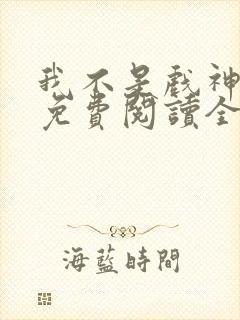 我不是戲神
免費閱讀全
海藍時間